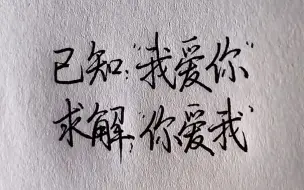 已知:"我爱你"
求解:"你爱我"